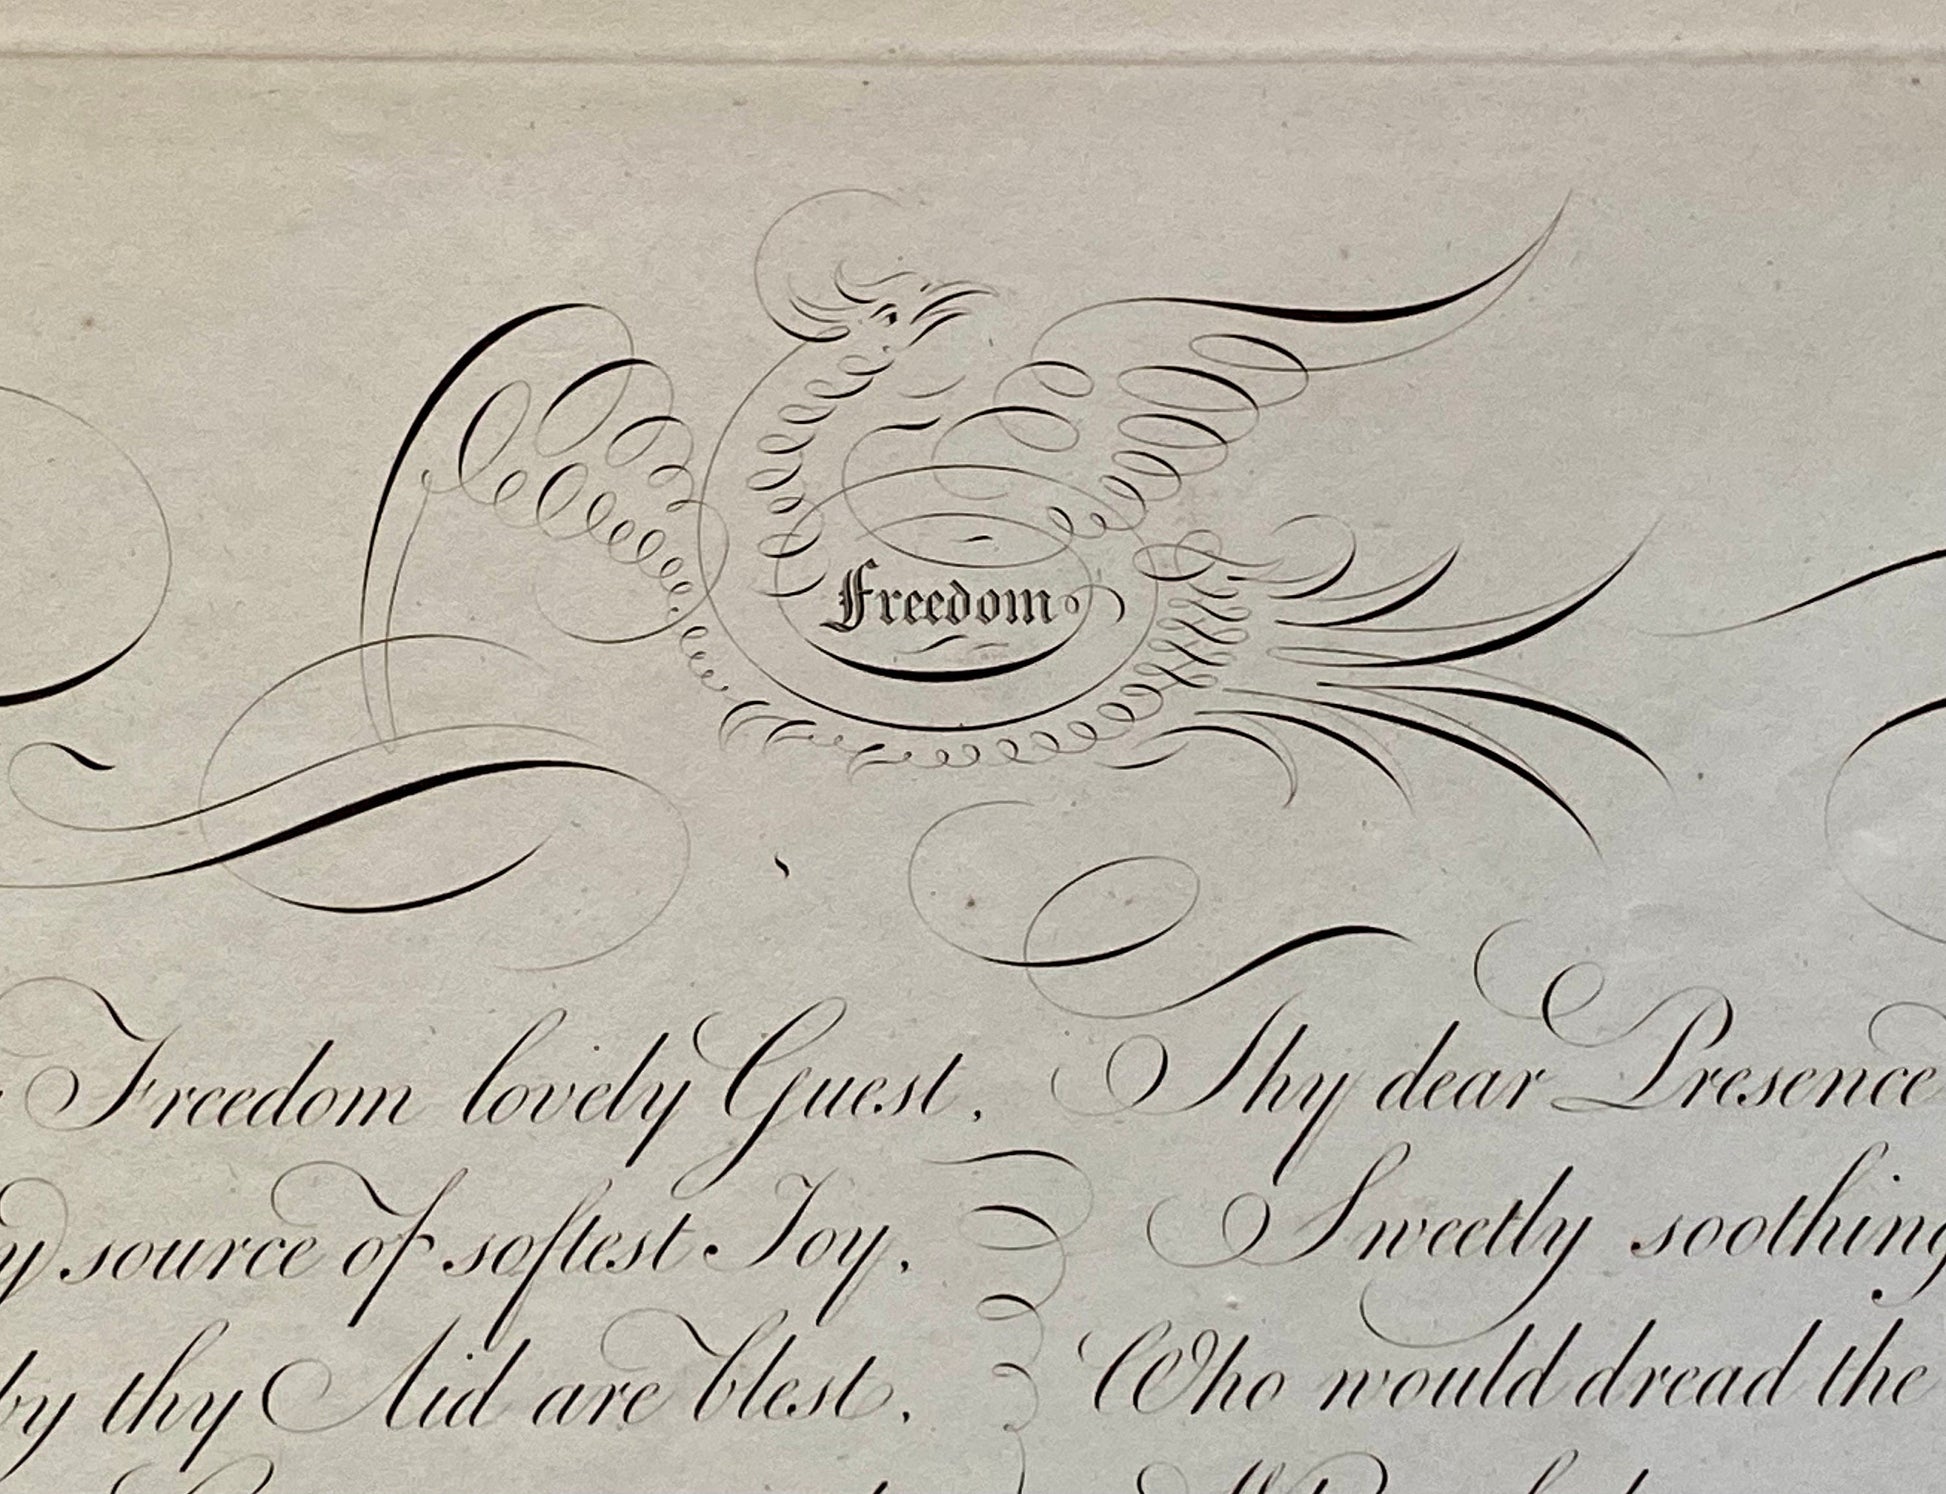 Freedom
Freedom lovely Guest, Thy dear Presence
source of softest Joy, Sweetly soothing
by thy Aid are blest, Who would dread the